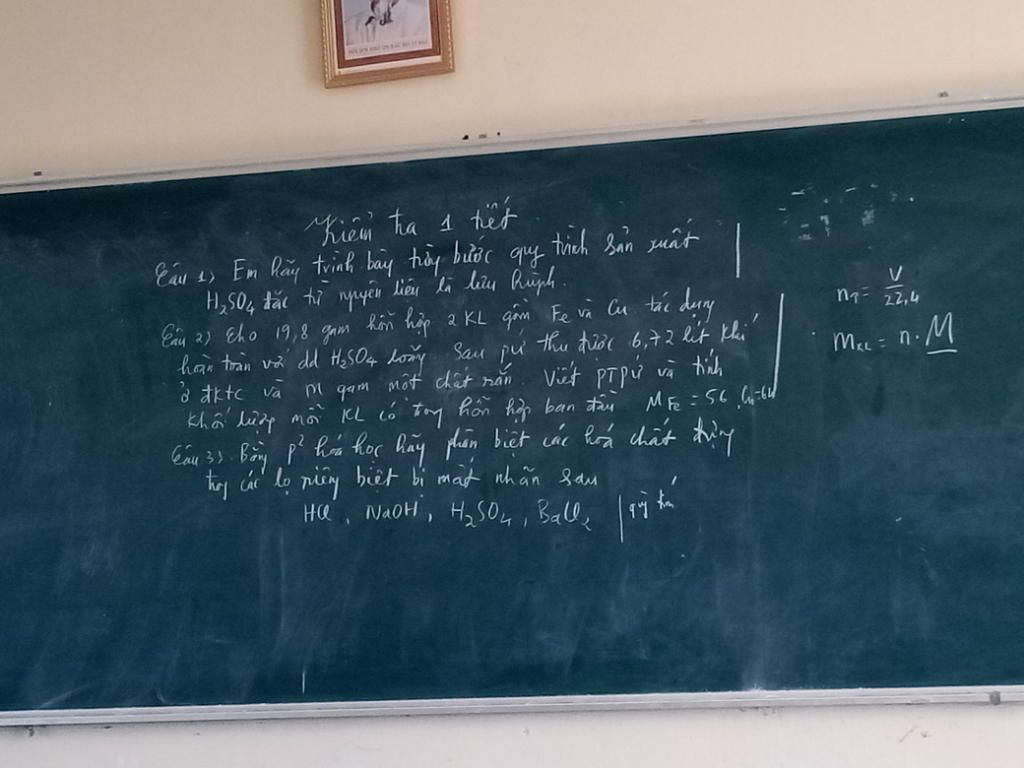 Kiểm tra 1 tiết
Câu 1) Em hãy trình bày từng bước quy trình sản xuất
H₂SO₄ đặc từ nguyên liệu là lưu huỳnh.
Câu 2) Cho 19,8 gam hỗn hợp 2 KL gồm Fe và Cu tác dụng
hoàn toàn với dd H₂SO₄ loãng. Sau pứ thu được 6,72 lít khí
ở đktc và m gam một chất rắn. Viết PTPứ và tính
khối lượng mỗi KL có trong hỗn hợp ban đầu MFe = 56, Cu=64
Câu 3) Bằng p² hoá học hãy phân biệt các hoá chất đựng
trong các lọ riêng biệt bị mất nhãn sau
HCl, NaOH, H₂SO₄, BaCl₂ | quỳ tím
n = V/22,4
mKL = n.M